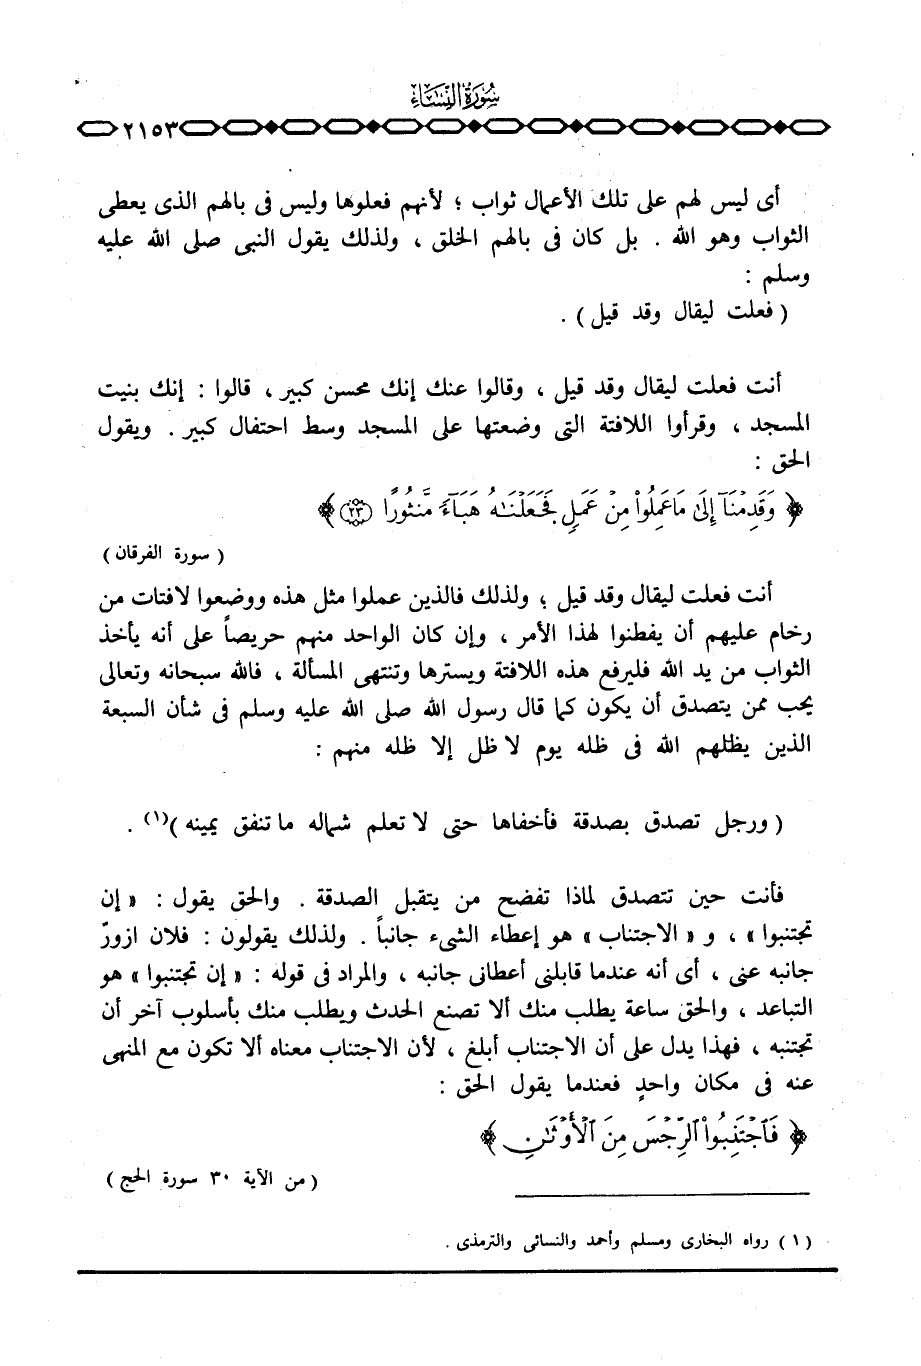 سورة النساء
٢١٥٣
أى ليس لهم على تلك الأعمال ثواب ؛ لأنهم فعلوها وليس فى بالهم الذى يعطى
الثواب وهو الله . بل كان فى بالهم الخلق ، ولذلك يقول النبى صلى الله عليه
وسلم :
( فعلت ليقال وقد قيل ) .
أنت فعلت ليقال وقد قيل ، وقالوا عنك إنك محسن كبير ، قالوا : إنك بنيت
المسجد ، وقرأوا اللافتة التى وضعتها على المسجد وسط احتفال كبير . ويقول
الحق :
﴿ وَقَدِمْنَآ إِلَىٰ مَا عَمِلُوا۟ مِنْ عَمَلٍ فَجَعَلْنَـٰهُ هَبَآءً مَّنثُورًا ﴿٢٣﴾ ﴾
( سورة الفرقان )
أنت فعلت ليقال وقد قيل ؛ ولذلك فالذين عملوا مثل هذه ووضعوا لافتات من
رخام عليهم أن يفطنوا لهذا الأمر ، وإن كان الواحد منهم حريصاً على أنه يأخذ
الثواب من يد الله فليرفع هذه اللافتة ويسترها وتنتهى المسألة ، فالله سبحانه وتعالى
يحب ممن يتصدق أن يكون كما قال رسول الله صلى الله عليه وسلم فى شأن السبعة
الذين يظلهم الله فى ظله يوم لا ظل إلا ظله منهم :
( ورجل تصدق بصدقة فأخفاها حتى لا تعلم شماله ما تنفق يمينه )(١) .
فأنت حين تتصدق لماذا تفضح من يتقبل الصدقة . والحق يقول : « إن
تجتنبوا » ، و « الاجتناب » هو إعطاء الشىء جانباً . ولذلك يقولون : فلان ازورّ
جانبه عنى ، أى أنه عندما قابلنى أعطانى جانبه ، والمراد فى قوله : « إن تجتنبوا » هو
التباعد ، والحق ساعة يطلب منك ألا تصنع الحدث ويطلب منك بأسلوب آخر أن
تجتنبه ، فهذا يدل على أن الاجتناب أبلغ ، لأن الاجتناب معناه ألا تكون مع المنهى
عنه فى مكان واحدٍ فعندما يقول الحق :
﴿ فَٱجْتَنِبُوا۟ ٱلرِّجْسَ مِنَ ٱلْأَوْثَـٰنِ ﴾
( من الآية ٣٠ سورة الحج )
( ١ ) رواه البخارى ومسلم وأحمد والنسائى والترمذى .